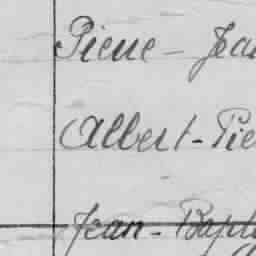 Pierre - Jea
Albert - Pie
Jean - Bapt